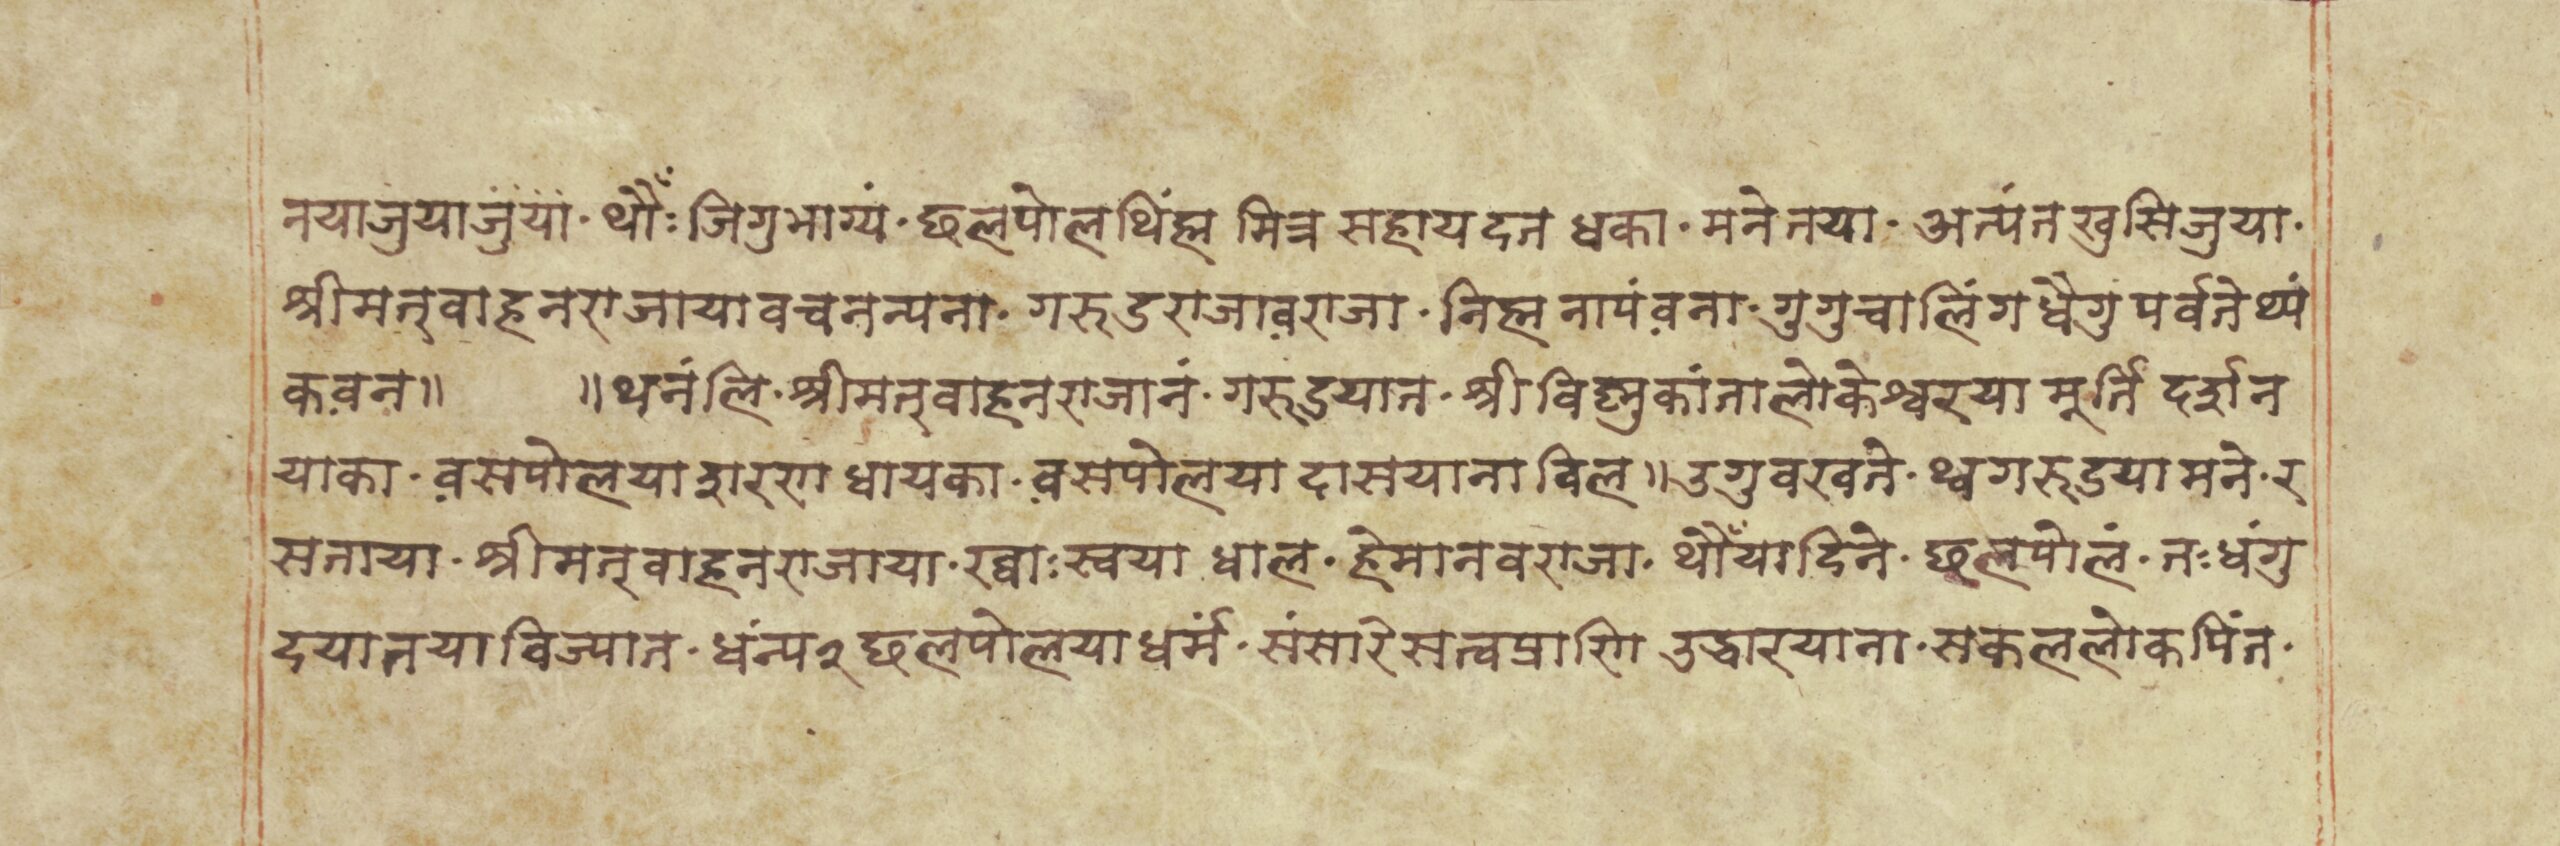 नयाजुयाजुंया॰ थौँः जिगुभाग्यं॰ छलपोलथिंह्म मित्र सहायदत धका॰ मनेतया॰ अत्यंतखुसिजुया॰
श्रीमत्वाहनराजायावचनन्यना॰ गरूडराजाव़राजा॰ निह्मनापंव़ना॰ गुगुचालिंगधैगु पर्वतेथ्यं
कव़न॥ ॥थनंलि॰ श्रीमत्वाहनराजानं॰ गरूडयात॰ श्रीविष्णुकांतालोकेश्वरया मूर्ति दर्शन
याका॰ व़सपोलयाशरण धायका॰ व़सपोलया दासयानाविल॥उगुवखते॰ थ्वगरूडयामने॰ र
सताया॰ श्रीमत्वाहनराजाया॰ ख्वाःस्वया धाल॰ हेमानवराजा॰ थौँयादिने॰ छलपोलं॰ तःधंगु
दयातयाविज्यात॰ धंन्य२छलपोलयाधर्म॰ संसारेसत्वप्राणि उद्धारयाना॰ सकललोकपिंत॰